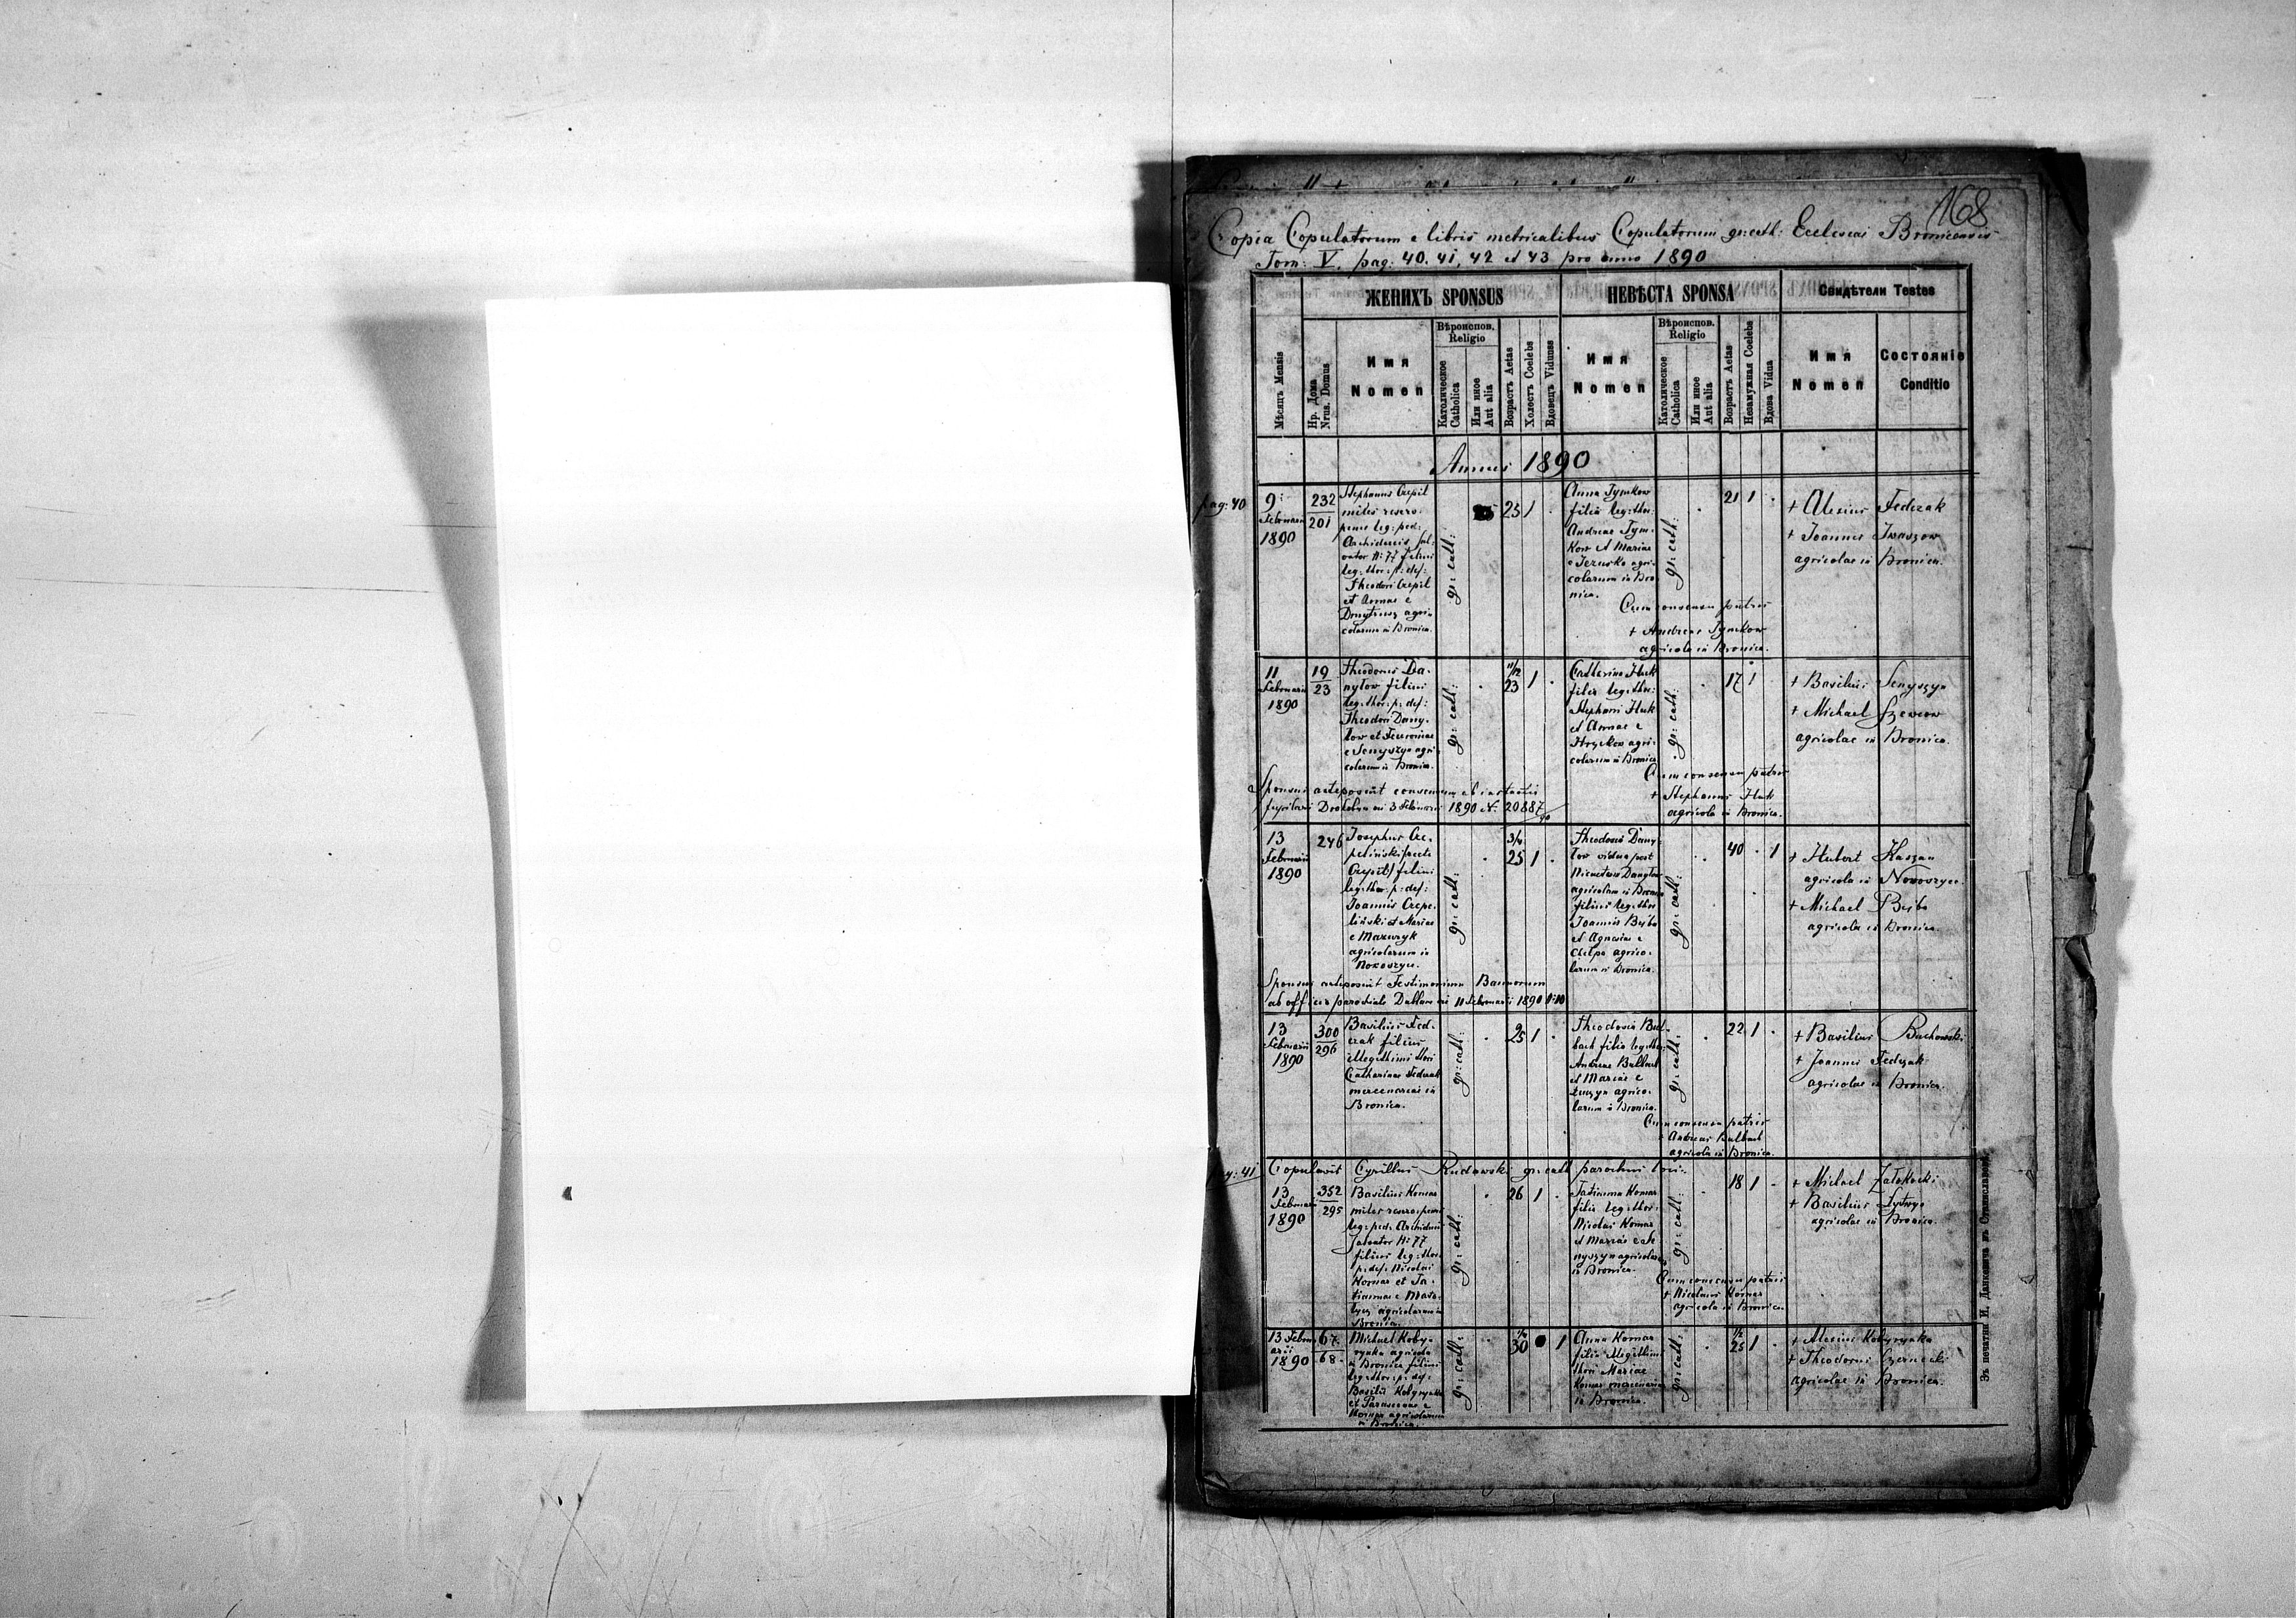 168
Copia Copulatorum e libris metricalibus Copulatorum gr: cath: Ecclesiae Bronicensis
Tom: V. pag: 40. 41, 42 et 43 pro anno 1890
ЖЕНИХЪ SPONSUS
НЕВѢСТА SPONSA
Свидѣтели Testes
Мѣсяцъ Mensis
Нр. Дома
Nrus. Domus
Имя
Nomen
Вѣроиспов.
Religio
Католическое
Catholica
Или иное
Aut alia
Возрастъ Aetas
Холостъ Coelebs
Вдовецъ Viduus
Имя
Nomen
Вѣроиспов.
Religio
Католическое
Catholica
Или иное
Aut alia
Возрастъ Aetas
Незамужная Coelebs
Вдова Vidua
Имя
Nomen
Состояніе
Conditio
Annus 1890
pag: 40
9
Februarii
1890
232
201
Stephanus Czepil
miles reserv.
leg: ped:
Archiducis Sal-
vator N: 77 filius
leg: thor: p: def:
Theodori Czepil
et Annae e
Dmytrusz agri-
colarum in Bronica.
gr: cath:
23 1
Anna Tymkow
filia leg: thor:
Andreae Tym-
kow et Mariae
agri-
colarum in Bro-
nica.
gr: cath:
21 1
Cum consensu patris
+ Andreas Tymkow
agricola in Bronica.
+ Alexius Fedczak
+ Joannes Iwaszow
agricolae in Bronica.
11
Februarii
1890
19
23
Theodorus Da-
nylow filius
leg: thor: p: def:
Theodori Dany-
low et
e Senyszyn agri-
colarum in Bronica.
gr: cath:
11/12
23 1
Catharina Huk
filia leg: thor:
Stephani Huk
et Annae e
Hryckow agri-
colarum in Bronica
gr: cath:
17 1
Cum consensu patris
+ Stephanus Huk
agricola in Bronica.
+ Basilius Senyszyn
+ Michael Szewcow
agricolae in Bronica.
Sponsus anteposuit consensum
3 Februarii 1890 N. 20887/90
13
Februarii
1890
246
Josephus Cze-
peliński (recte
Czepil) filius
leg: thor: p: def:
Joannis Czepe-
liński et Mariae
e Mazuryk
agricolarum in
gr: cath:
25 1
Theodosia Dany-
low vidua post
Danylow
agricolam in Bronica
leg: thor:
Joannis Bybo
et Agnesiae e
agrico-
larum in Bronica.
gr: cath:
40 1
+ Hubert Kaszan
agricola in
+ Michael Bybo
agricola in Bronica.
Sponsus anteposuit Testimonium Bannorum
ab officio parochiali 11 Februarii 1890 N: 10
13
Februarii
1890
300
296
Basilius Fed-
czak filius
illegithimi thori
Catharinae Fedczak
mercenariae in
Bronica.
gr: cath:
25 1
Theodosia Bul-
bach filia leg: thor:
Andreae Bulbach
et Mariae e
agrico-
larum in Bronica.
gr: cath:
22 1
Cum consensu patris
+ Andreas Bulbach
agricola in Bronica.
+ Basilius Buchowski
+ Joannes Fedczak
agricolae in Bronica.
pag: 41
Copulavit Cyrillus Rudawski gr: cath: parochus loci.
13
Februarii
1890
352
295
Basilius Komar
miles
leg: ped: Archiducis
Salvator N: 77
filius leg: thor:
p: def: Nicolai
Komar et Ta-
tiannae e
agricolarum in
Bronica.
gr: cath:
26 1
Tatianna Komar
filia leg: thor:
Nicolai Komar
et Mariae e Se-
nyszyn agricolarum
in Bronica.
gr: cath:
18 1
Cum consensu patris
+ Nicolaus Komar
agricola in Bronica.
+ Michael Załokocki
+ Basilius
agricolae in Bronica.
13 Febru-
arii
1890
67
68
Michael Koby-
rynka agricola
in Bronica filius
leg: thor: p: def:
Basilii Kobyrynka
et Parascevae e
Komar agricolarum
in Bronica.
gr: cath:
30 1
Anna Komar
filia illegithimi
thori Mariae
Komar mercenariae
in Bronica.
gr: cath:
1/2
25 1
+ Alexius Kobyrynka
+ Theodorus Czernecki
agricolae in Bronica.
Зъ печатни И. Данкевича въ Станиславовѣ.